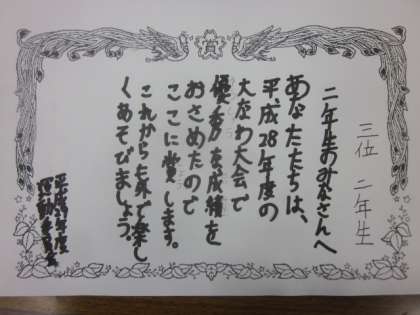 賞
三位 二年生
二年生のみなさんへ
あなたたちは、
平成28年度の
大なわ大会で
優秀な成績を
おさめたので
ここに賞します。
これからも外で楽し
くあそびましょう。
運動委員会